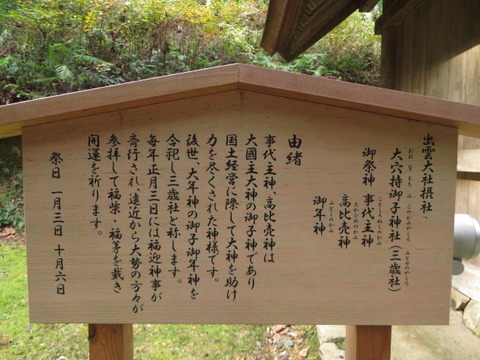 出雲大社摂社、
大穴持御子神社（三歳社）
御祭神 事代主神
高比売神
御年神
由緒
事代主神、高比売神は
大國主大神の御子神であり
国土経営に際して大神を助け
力を尽くされた神様です。
後世、大年神の御子御年神を
合祀し三歳社と称します。
毎年正月三日には福迎神事が
斎行され、遠近から大勢の方々が
参拝して福柴・福茅を戴き
開運を祈ります。
祭日 一月三日 十月六日